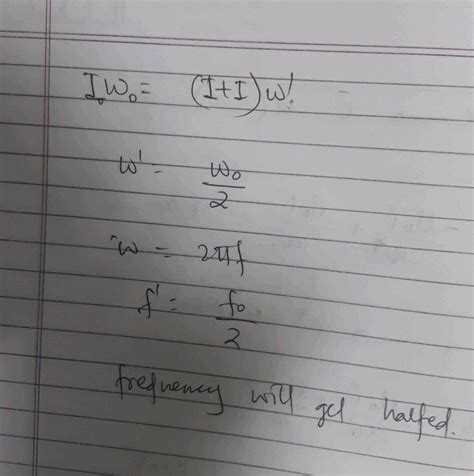 I₀ω₀ = (I+I)ω'
ω' = ω₀/2
ω = 2πf
f' = f₀/2
frequency will get halfed.